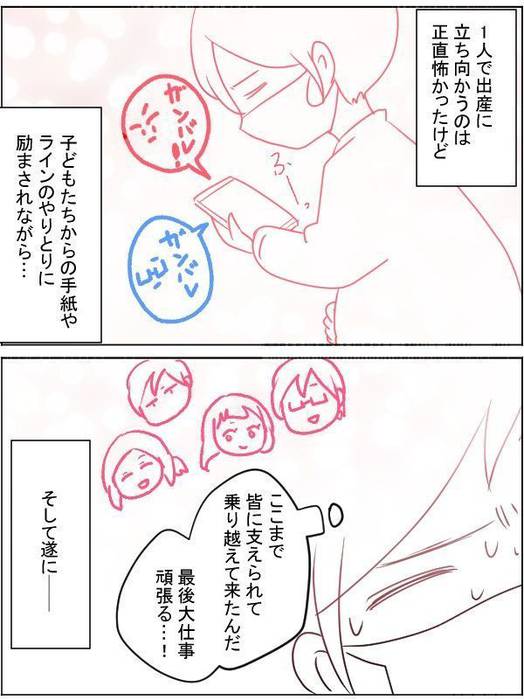 1人で出産に
立ち向かうのは
正直怖かったけど
ガンバル!
ふーっ
ガンバレ
子どもたちからの手紙や
ラインのやりとりに
励まされながら…
ここまで
皆に支えられて
乗り越えて来たんだ
最後大仕事
頑張る…!
そして遂に――